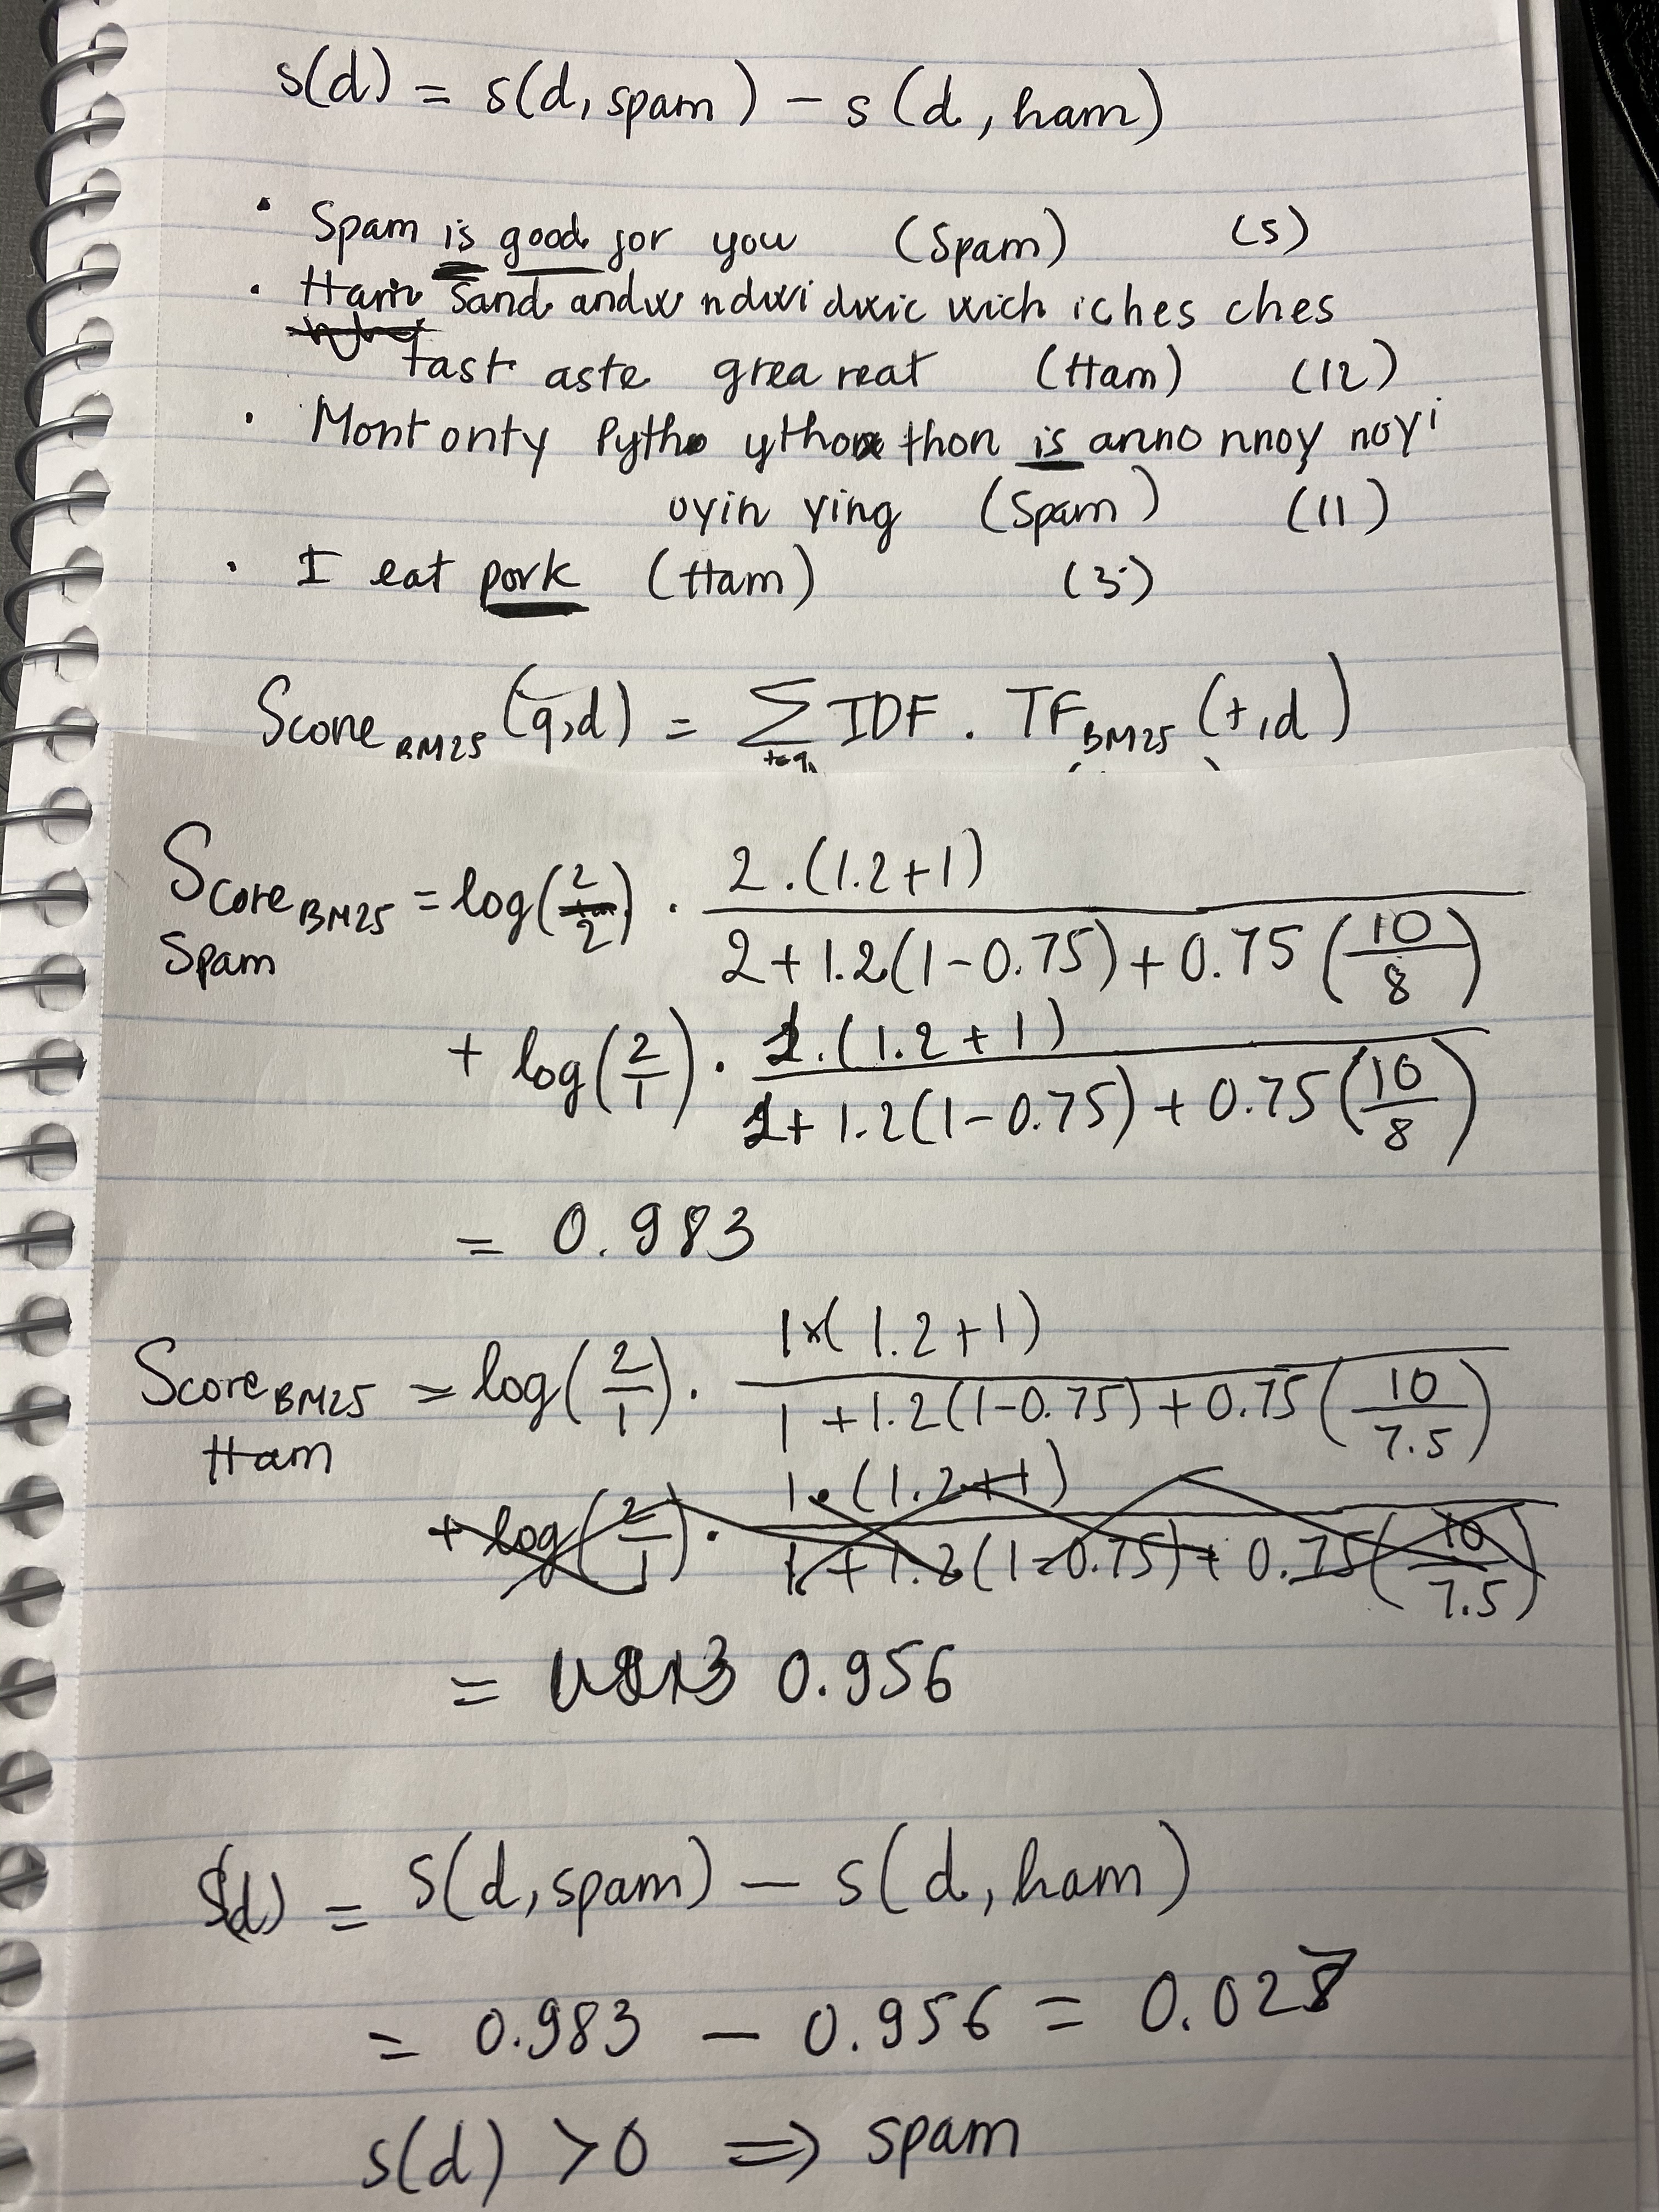 s(d) = s(d, spam) - s(d, ham)
• Spam is good for you (Spam) (5)
• Ham Sand andw ndwi dwic wich iches ches
tast aste grea reat (Ham) (12)
• Mont onty Pytho ython thon is anno nnoy noyi
oyin ying (Spam) (11)
• I eat pork (Ham) (3)
Score BM25 (q,d) = Σ t∈q IDF . TF BM25 (t,d)
Score BM25 Spam = log(2/2) . 2.(1.2+1) / 2+1.2(1-0.75)+0.75(10/8)
+ log(2/1) . 1.(1.2+1) / 1+1.2(1-0.75)+0.75(10/8)
= 0.983
Score BM25 Ham = log(2/1) . 1x(1.2+1) / 1+1.2(1-0.75)+0.75(10/7.5)
+ log(2/1) . 1.(1.2+1) / 1+1.2(1-0.75)+0.75(10/7.5)
= 0.956
s(d) = s(d, spam) - s(d, ham)
= 0.983 - 0.956 = 0.027
s(d) > 0 => spam